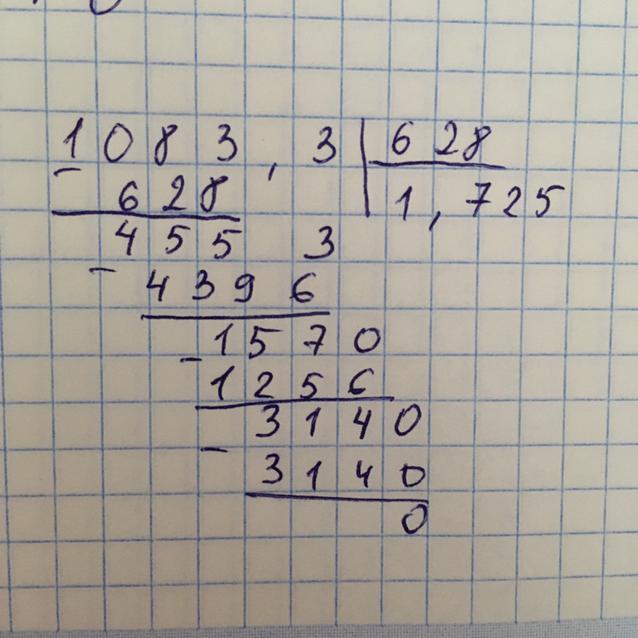 1083,3 | 628
- 628 | 1,725
455 3
- 4396
- 1570
1256
- 3140
3140
0